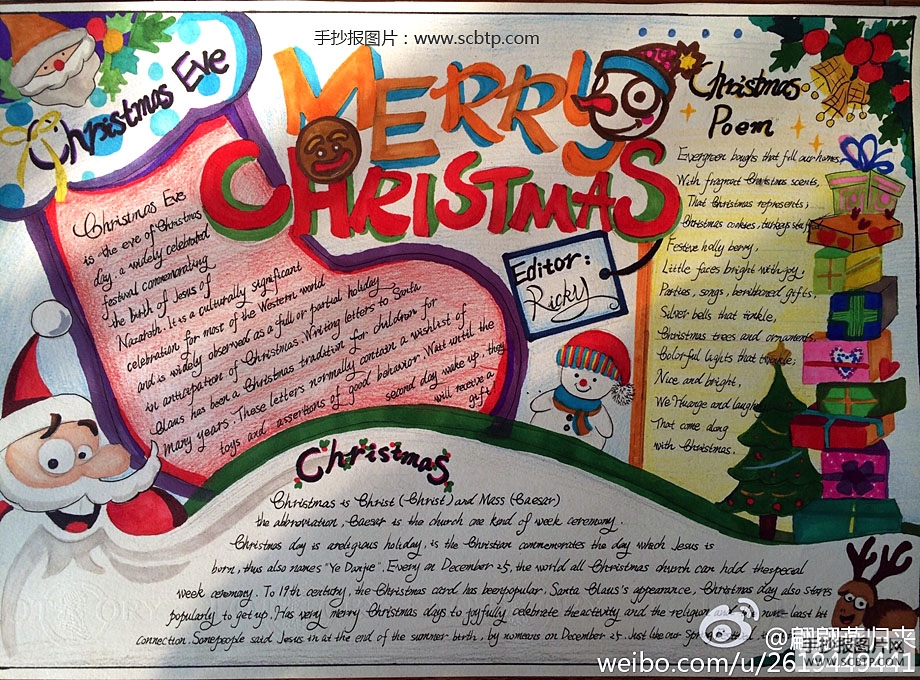 手抄报图片：www.scbtp.com
Christmas Eve
MERRY
CHRISTMAS
Christmas
Poem
Editor:
Ricky
Christmas Eve
is the eve of Christmas
day. a widely celebrated
festival commemorating
the birth of Jesus of
Nazatoth. It is a culturally significant
celebration for most of the Western world
and is widely observed as a full or partial holiday
in anticipation of Christmas. Writing letters to Santa
Claus has been a Christmas tradition for children for
many years. These letters normally contain a wishlist of
toys and assertions of good behavior. Wait until the
second day wake up, they
will receive a
gift.
Evergreen boughs that fill our homes,
With fragrant Christmas scents,
That Christmas represents,
Christmas cookies, turkeys
Festive holly berry,
Little faces bright with joy;
Parties, songs, beribboned gifts,
Silver bells that tinkle,
Christmas trees and ornaments,
Colorful lights that twinkle;
Nice and bright,
We Huange and laugh
That come along
with Christmas.
Christmas
Christmas is Christ (Christ) and Mass (Caesar)
the abbroviation, Caeser is the church one kind of week ceremony.
Christmas day is areligious holiday, is the Christian commemorates the day which Jesus is
born, thus also names "Ye Danjie". Every on December 25, the world all Christmas church can hdd thespecial
week ceremony. To 19th century, the Christmas card has beenpopular. Santa Claus's appearance, Christmas day also starts
popularly to get up. Has very merry Christmas days to joyfully celebrate the activity and the religion least bit
connection. Somepeople said Jesus in at the end of the summer birth, by nomeans on December 25. Just like our
@翩翩燕归来
手抄报图片网
weibo.com/u/2619449441
WWW.SCBTP.COM